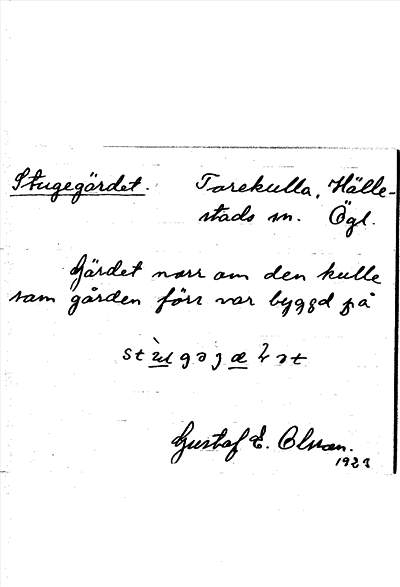 Stugegärdet. Torekulla, Hälle-
stads sn. Ögl.
Gärdet norr om den kulle
som gården förr var byggd på
Gustaf E. Olsson.